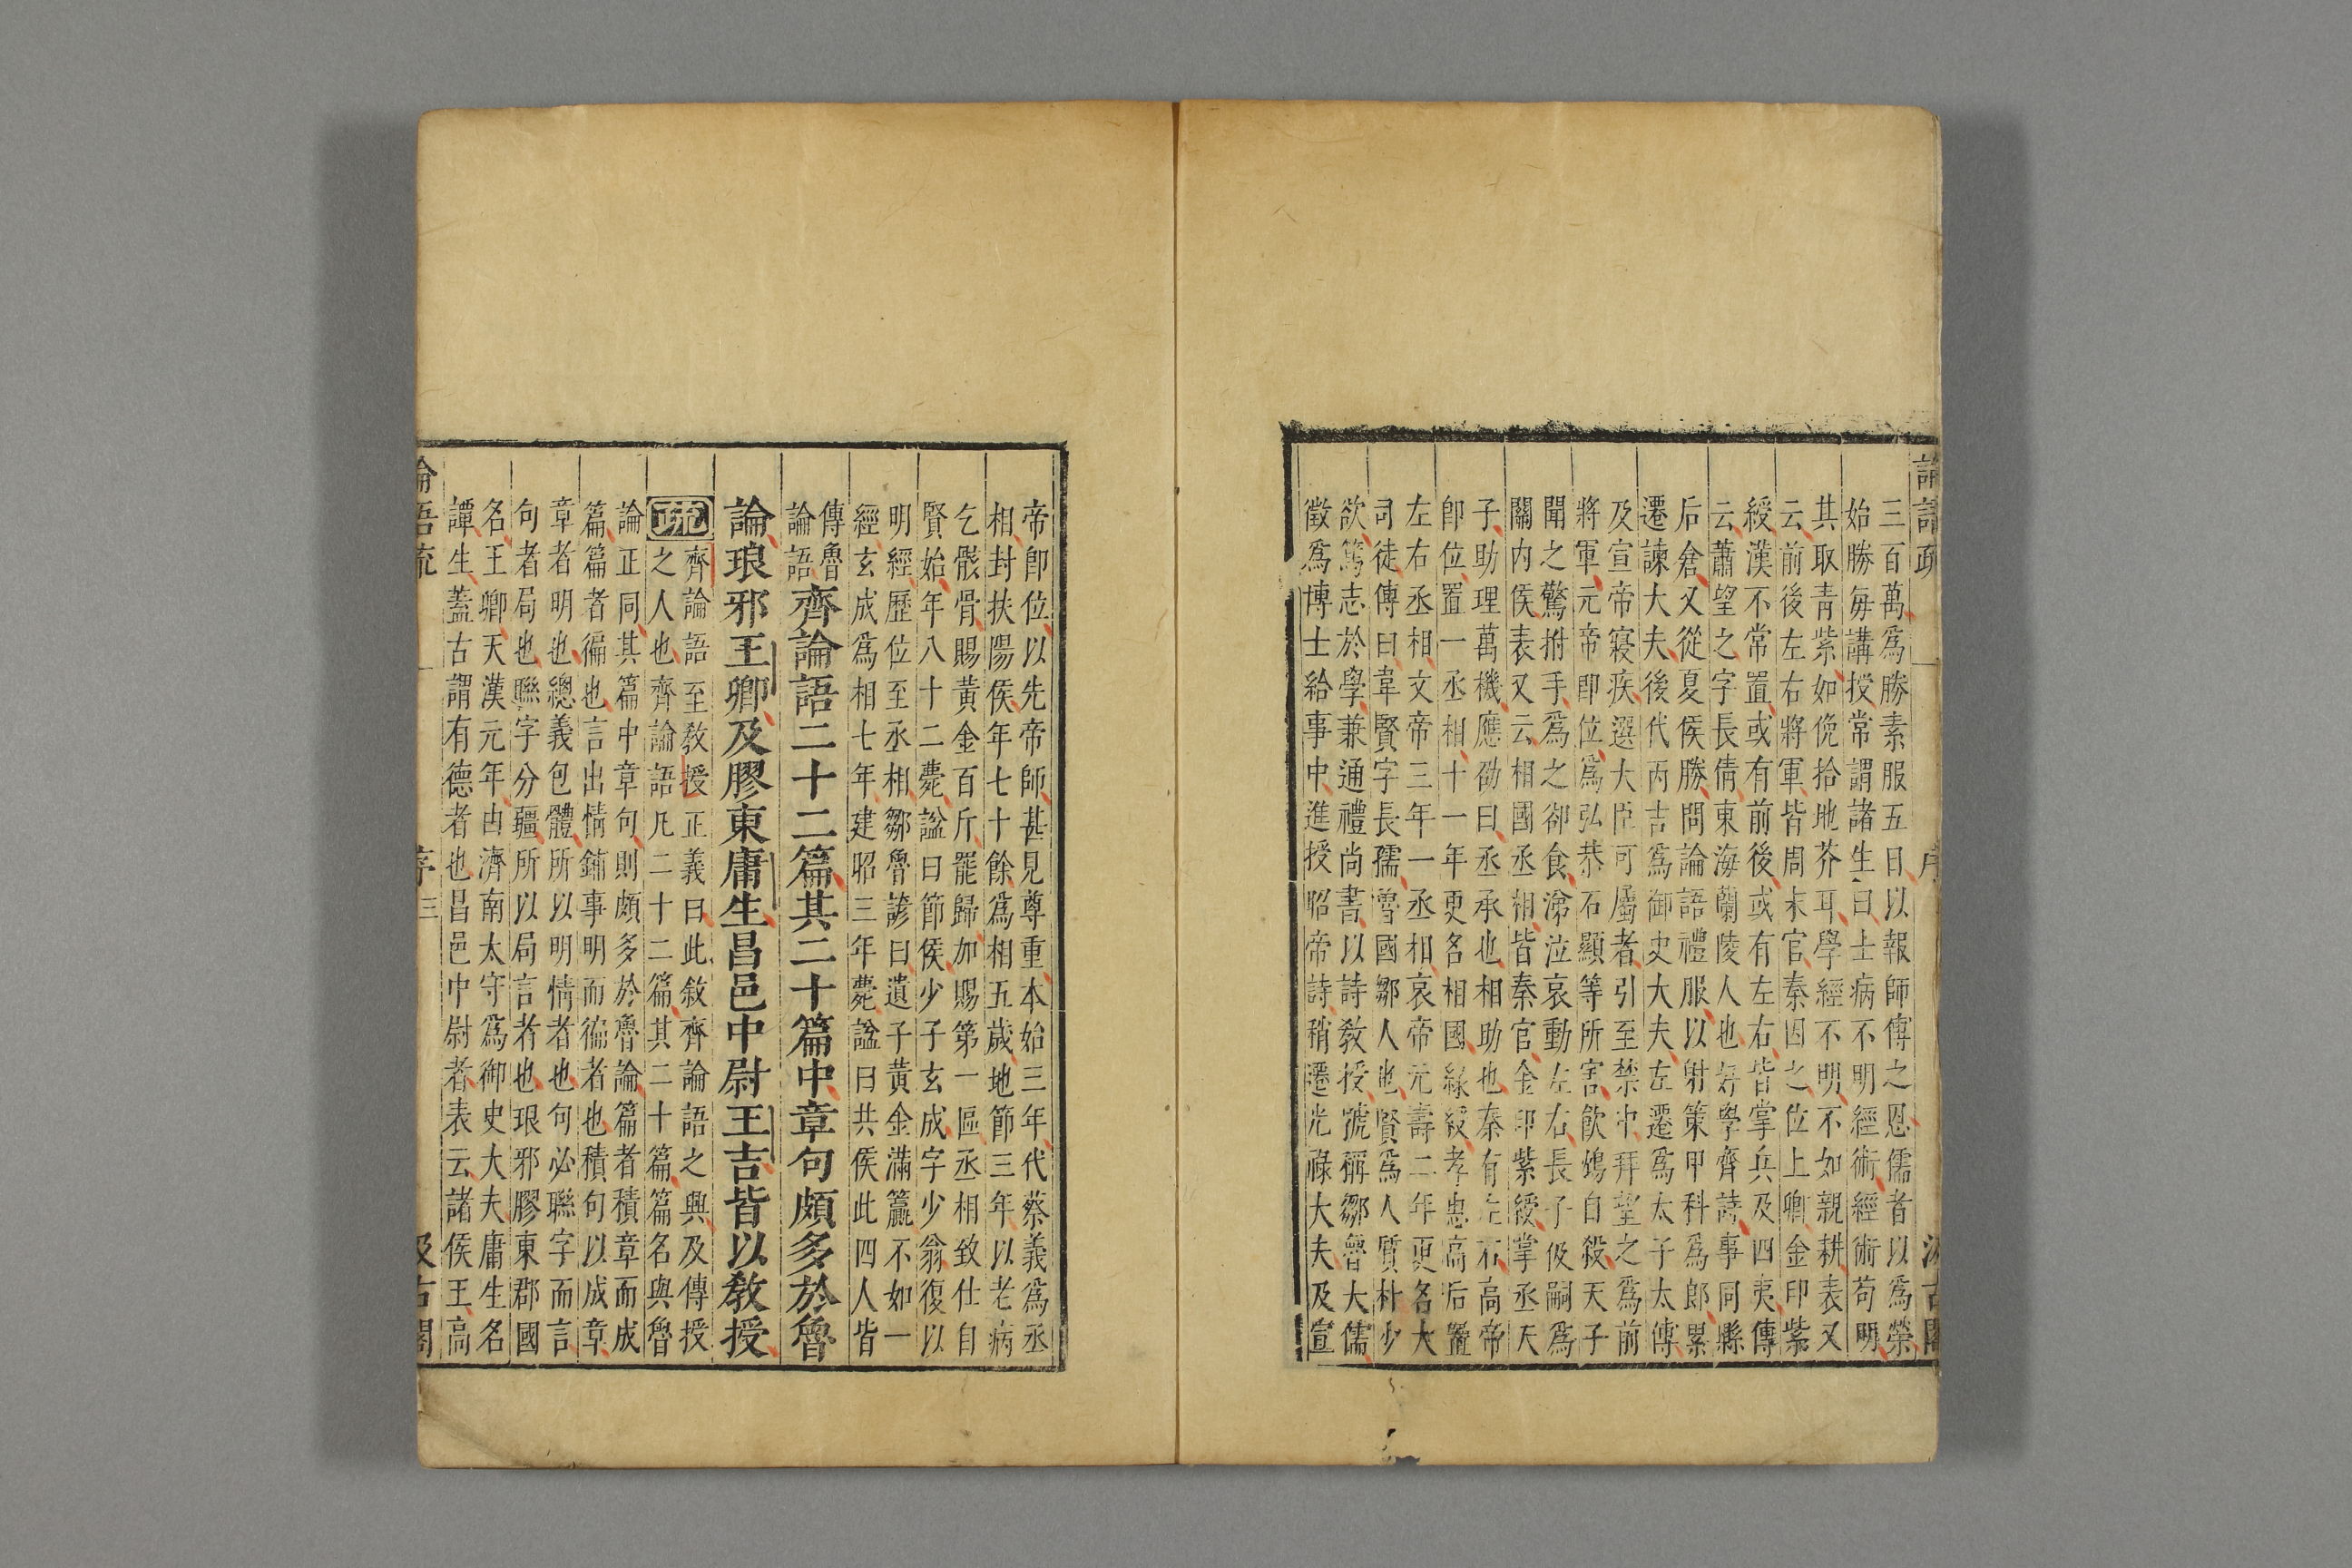 三百萬爲勝素服五日以報師傅之恩儒者以爲榮
始勝每講授常謂諸生曰士病不明經術經術苟明
其取青紫如俛拾地芥耳學經不明不如親耕表又
云前後左右將軍皆周末官秦因之位上卿金印紫
綬漢不常置或有前後或有左右皆掌兵及四夷傳
云蕭望之字長倩東海蘭陵人也好學齊詩事同縣
后倉又從夏侯勝問論語禮服以射策甲科爲郎累
遷諫大夫後代丙吉爲御史大夫左遷爲太子太傅
及宣帝寢疾選大臣可屬者引至禁中拜望之爲前
將軍元帝卽位爲弘恭石顯等所害飮鴆自殺天子
聞之驚拊手爲之卻食涕泣哀動左右長子伋嗣爲
關內侯表又云相國丞相皆秦官金印紫綬掌丞天
子助理萬機應劭曰丞承也相助也秦有左右高帝
卽位置一丞相十一年更名相國綠綬孝惠高后置
左右丞相文帝三年一丞相哀帝元壽二年更名大
司徒傳曰韋賢字長孺魯國鄒人也賢爲人質朴少
欲篤志於學兼通禮尚書以詩敎授號稱鄒魯大儒
徵爲博士給事中進授昭帝詩稍遷光祿大夫及宣
帝卽位以先帝師甚見尊重本始三年代蔡義爲丞
相封扶陽侯年七十餘爲相五歲地節三年以老病
乞骸骨賜黃金百斤罷歸加賜第一區丞相致仕自
賢始年八十二薨謚曰節侯少子玄成字少翁復以
明經歷位至丞相鄒魯諺曰遺子黃金滿籯不如一
經玄成爲相七年建昭三年薨謚曰共侯此四人皆
傳魯
論語
齊論語二十二篇其二十篇中章句頗多於魯
論琅邪王卿及膠東庸生昌邑中尉王吉皆以敎授
疏
齊論語至敎授正義曰此敘齊論語之興及傳授
之人也齊論語凡二十二篇其二十篇篇名與魯
論正同其篇中章句則頗多於魯論篇者積章而成
篇篇者徧也言出情鋪事明而徧者也積句以成章
章者明也總義包體所以明情者也句必聯字而言
句者局也聯字分疆所以局言者也琅邪膠東郡國
名王卿天漢元年由濟南太守爲御史大夫庸生名
譚生蓋古謂有德者也昌邑中尉者表云諸侯王高
論語疏
序三
汲古閣